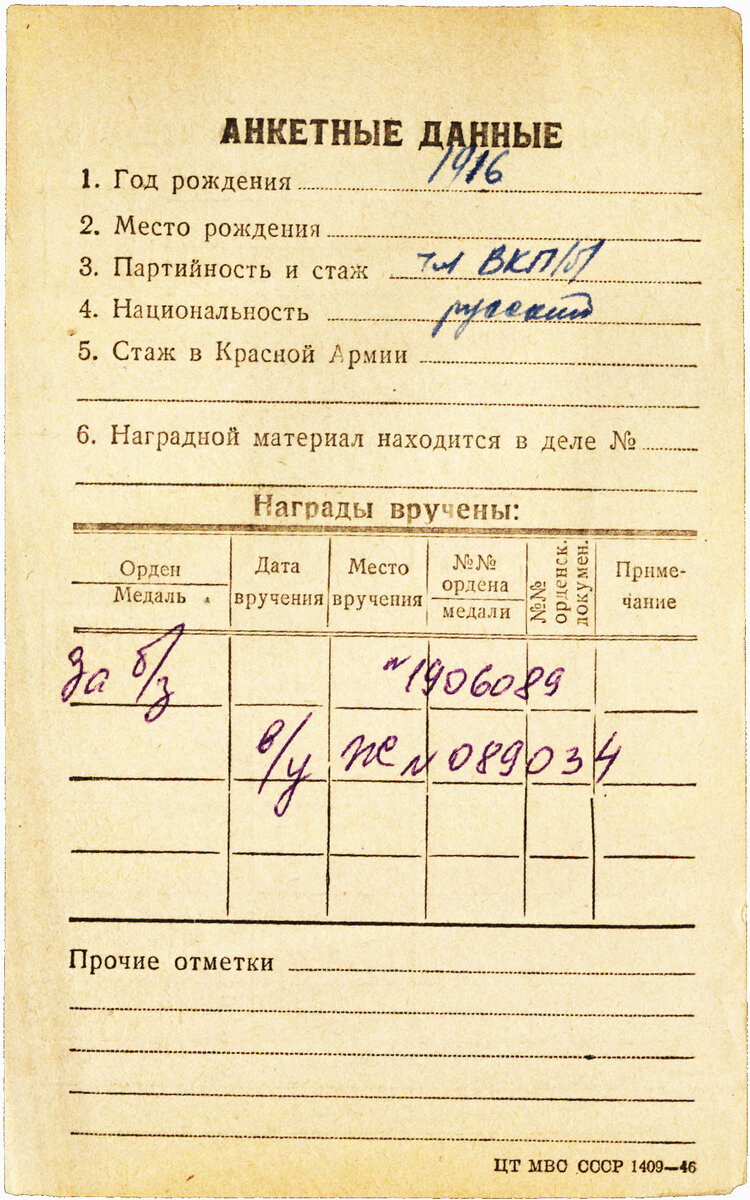 АНКЕТНЫЕ ДАННЫЕ
1. Год рождения 1916
2. Место рождения
3. Партийность и стаж чл ВКП/б/
4. Национальность русский
5. Стаж в Красной Армии
6. Наградной материал находится в деле №
Награды вручены:
Орден
Медаль
Дата вручения
Место вручения
№№ ордена
медали
№№ орденск. докумен.
Примечание
За б/з №1906089
в/у Ж № 089034
Прочие отметки
ЦТ МВС СССР 1409—46